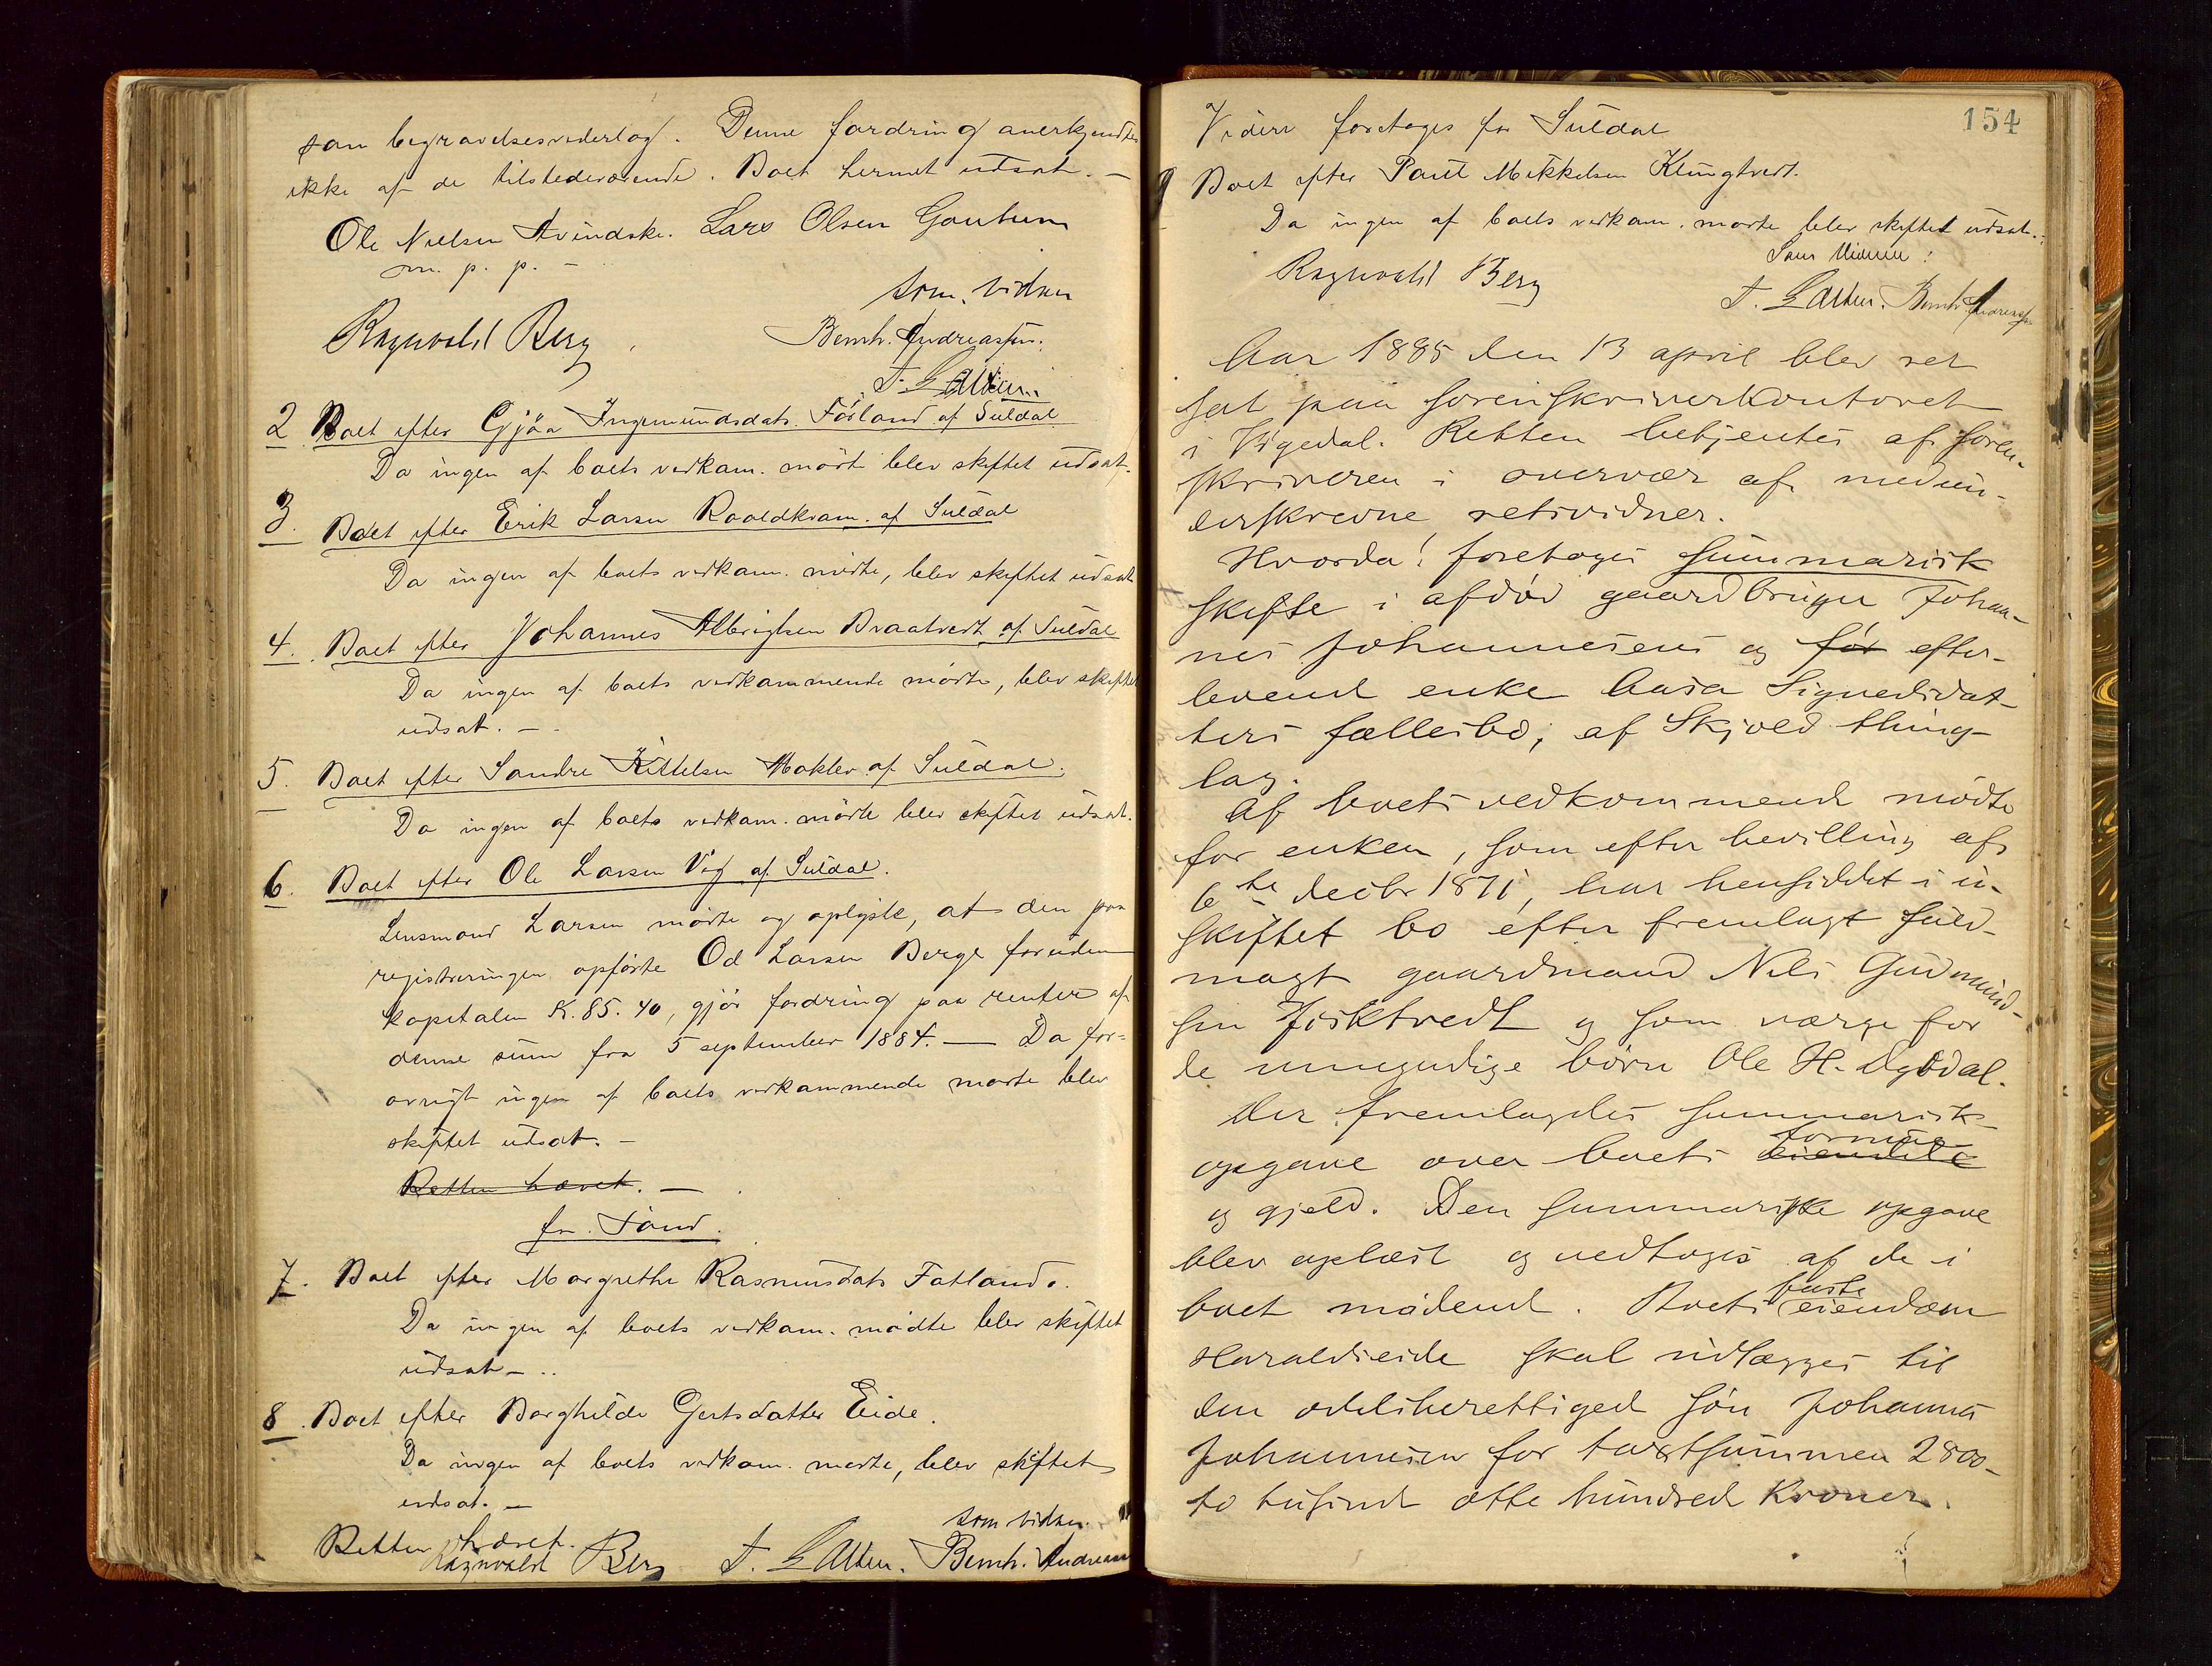 som begravelsesvederlag. Denne fordring anerkjendtes
ikke af de tilstedeværende. Boet hermed udsat. —
Ole Nielsen Lars Olsen Gautun
m. p. p. —
som vidner
Ragnvald Berg Bernh. Andreassen.
2 Boet efter Gjøa Ingemundsdatr. Førland af Suldal
Da ingen af boets vedkom. mødte blev skiftet udsat.
3. Boet efter Erik Larsen Roaldkvam. af Suldal
Da ingen af boets vedkom. mødte, blev skiftet udsat
4. Boet efter Johannes Albrigtsen Braatvedt af Suldal
Da ingen af boets vedkommende mødte, blev skiftet
udsat. —
5. Boet efter Sondre Kittelsen af Suldal.
Da ingen af boets vedkom. mødte blev skiftet udsat.
6. Boet efter Ole Larsen Vig af Suldal.
Lensmand Larsen mødte og oplyste, at den paa
registreringen opførte Od Larsen Berge foruden
kapitalen K. 85. 40, gjør fordring paa renter af
denne sum fra 5 september 1884. — Da for-
øvrigt ingen af boets vedkommende mødte blev
skiftet udsat. —
Retten hævet. —
for Sand.
7. Boet efter Margrethe Rasmusdatr Fatland.
Da ingen af boets vedkom. mødte blev skiftet
udsat — ..
8. Boet efter Borghilde Gjertsdatter Eide.
Da ingen af boets vedkom. mødte, blev skiftet
udsat. —
som vidner.
Retten hævet.
Ragnvald Berg Bernh. Andreassen
154
Videre foretoges for Suldal
9 Boet efter Paul Mikkelsen Klungtvedt.
Da ingen af boets vedkom. mødte blev skiftet udsat.
Som Vidner:
Ragnvald Berg Bernh. Andreassen
Aar 1885 den 13 april blev ret
sat paa sorenskriverkontoret
i Vigedal. Retten betjentes af soren-
skriveren i overvær af medun-
derskrevne retsvidner.
Hvorda! foretoges summarisk
skifte i afdød gaardbruger Johan-
nes Johannesens og før efter-
levende enke Aasa Signedsdat-
ters fællesbo, af Skjold thing-
lag.
Af boets vedkommende mødte
for enken, som efter bevilling af
6te decbr 1871, har hensiddet i u-
skiftet bo efter fremlagt fuld-
magt gaardmand Nils Gudmund-
sen Isiktvedt og som værge for
de umyndige børn Ole H. Dybdal.
Der fremlagdes summarisk
formue
opgave over boets eiendele
og gjeld. Den summariske opgave
blev oplæst og vedtoges af de i
faste
boet mødende. Boets eiendom
Haraldseide skal udlægges til
den odelsberettigede søn Johannes
Johannesen for taxtsummen 2800-
to tusinde otte hundrede Kroner.